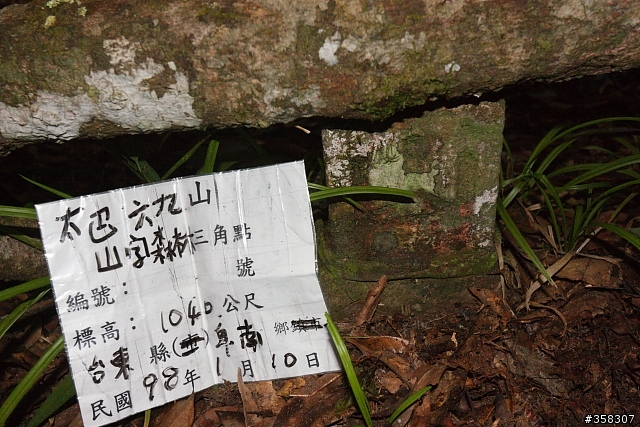 太巴六九山
山字森林三角點
號
編號：
標高：1040公尺
台東縣(市)卑南鄉
民國98年1月10日
#358307